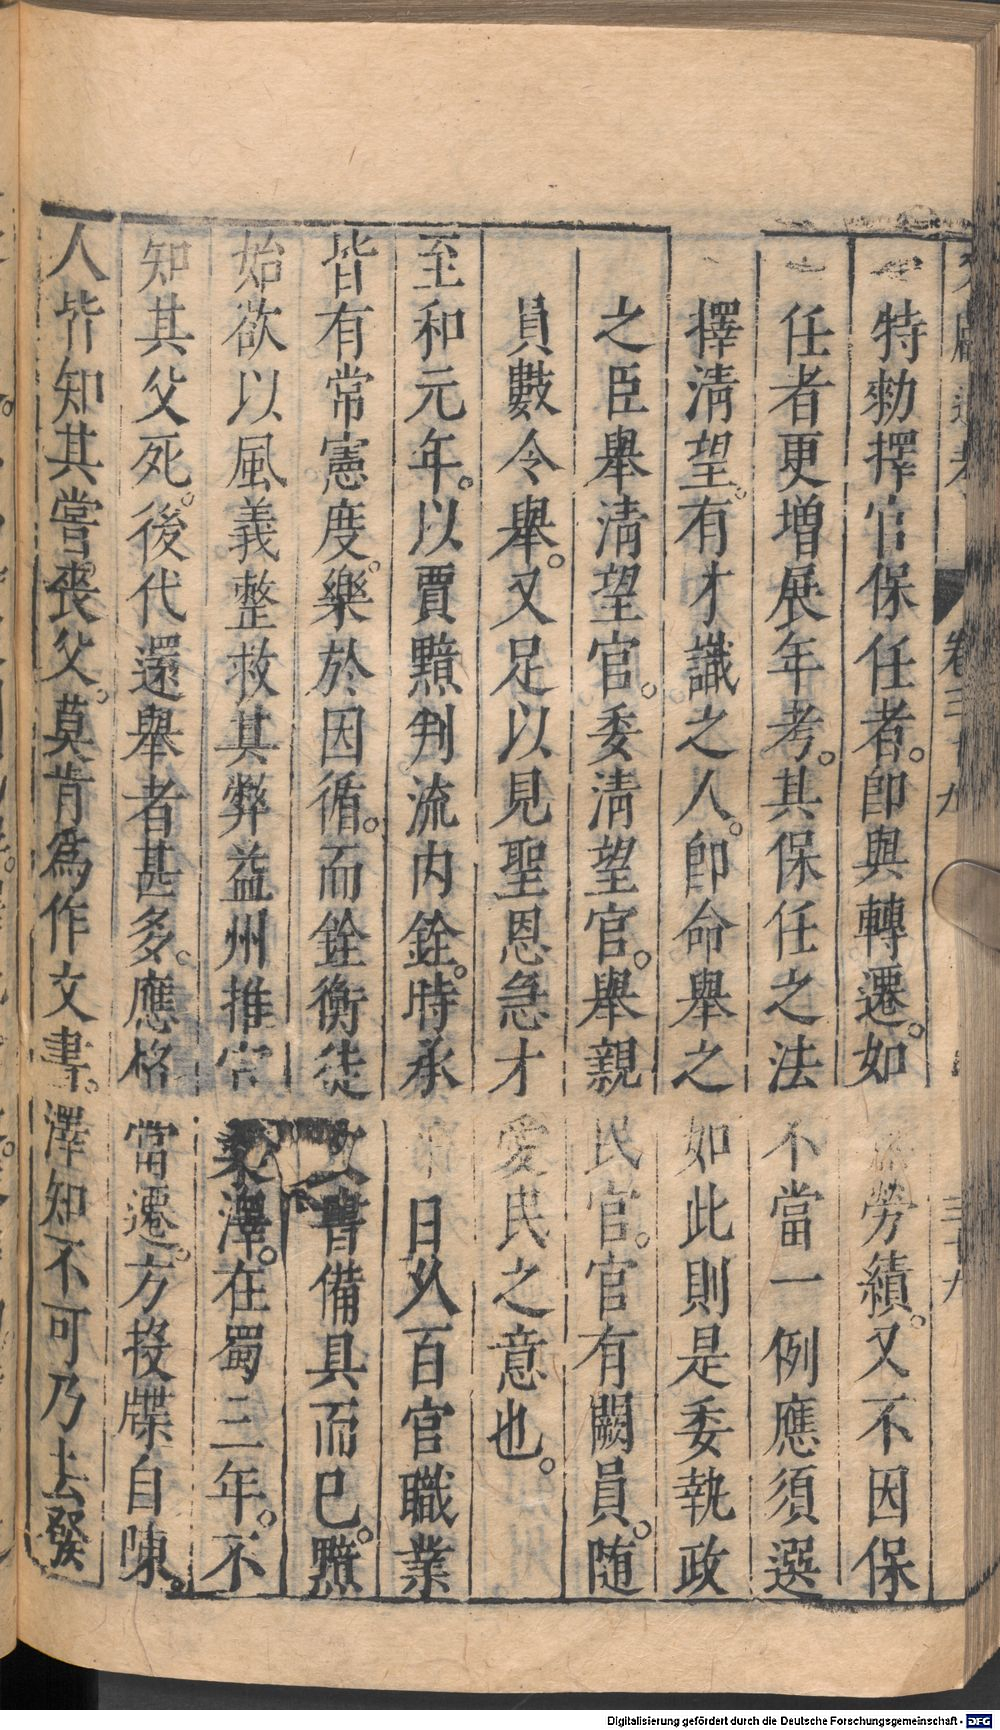 特勑擇官保任者。即與轉遷。如勞績。又不因保
任者更增展年考。其保任之法不當一例應須選
擇淸望。有才識之人。即命舉之如此則是委執政
之臣舉淸望官。委淸望官。舉親民官。官有闕員。随
員數令舉。又足以見聖恩急才愛民之意也。
至和元年。以賈黯判流内銓。時承平日久百官職業
皆有常憲度。樂於因循。而銓衡徒文書備具而已。黯
始欲以風義整救其弊益州推官桑澤。在蜀三年。不
知其父死。後代還舉者甚多。應格當遷。方投牒自陳。
人皆知其嘗喪父。莫肯爲作文書。澤知不可乃去發
卷三十九
三十九
Digitalisierung gefördert durch die Deutsche Forschungsgemeinschaft - DFG